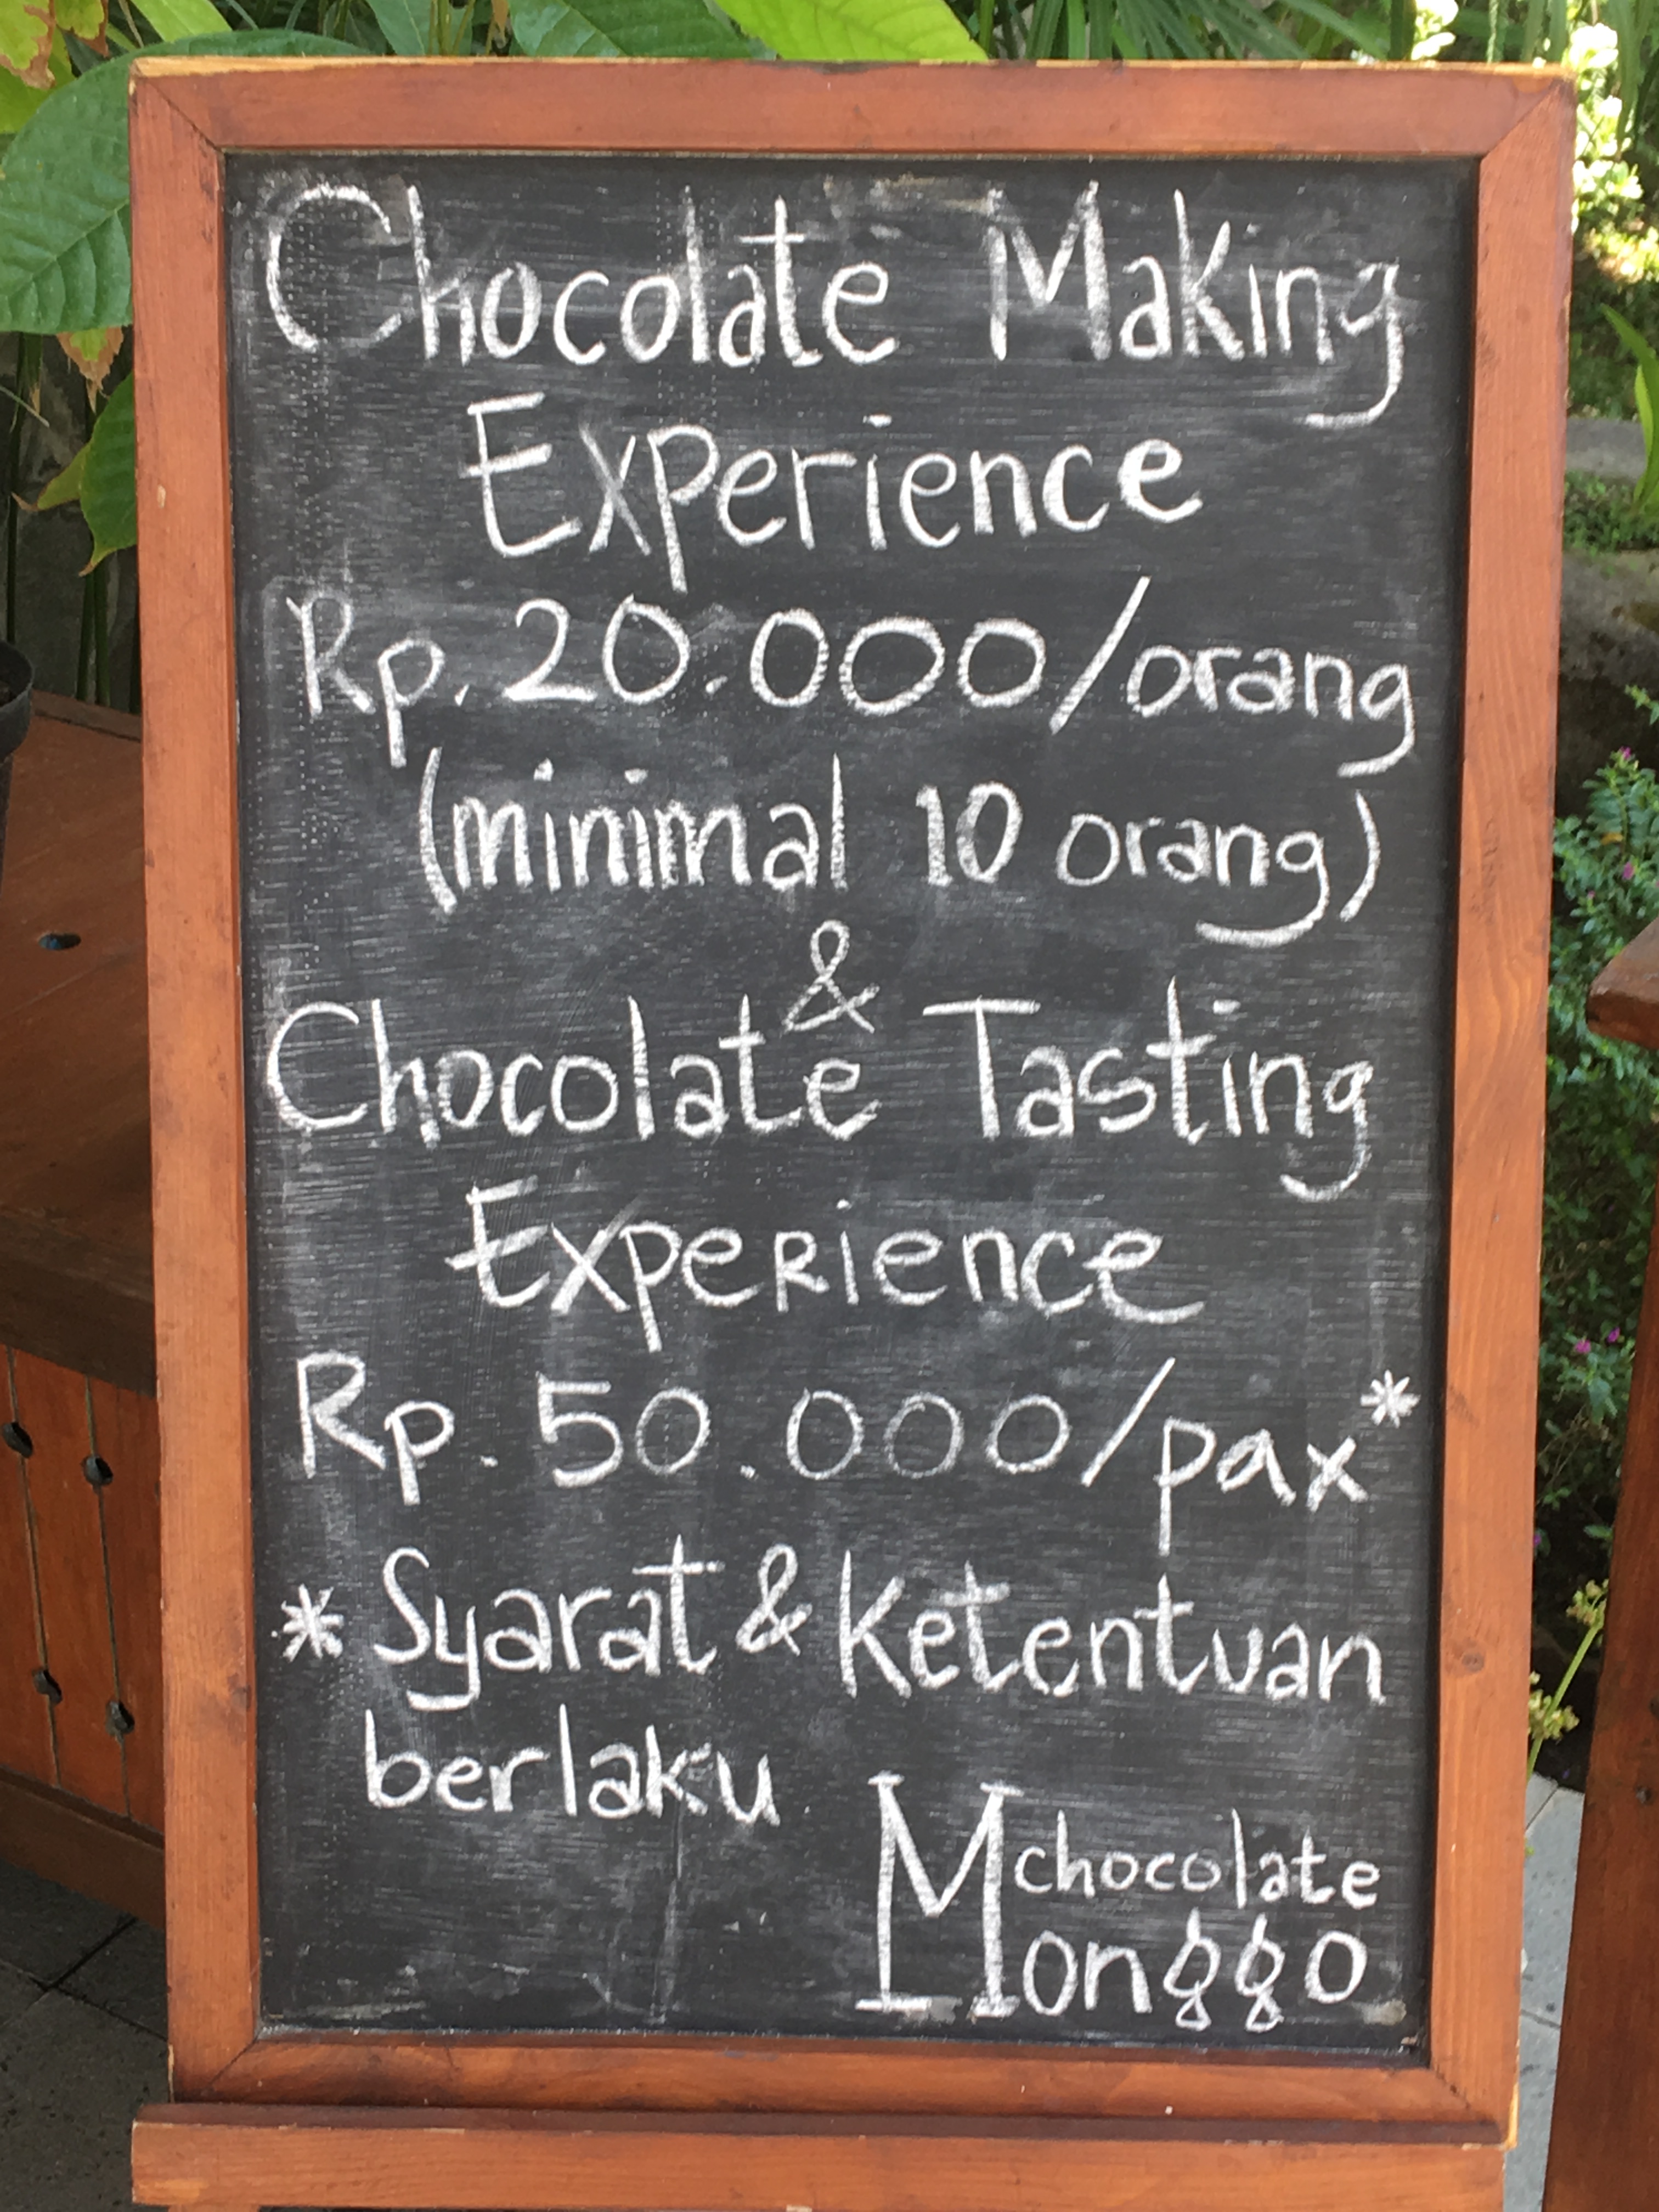 Chocolate Making
Experience
Rp. 20.000/orang
(minimal 10 orang)
&
Chocolate Tasting
Experience
Rp. 50.000/pax*
* Syarat & Ketentuan
berlaku
chocolate
Monggo